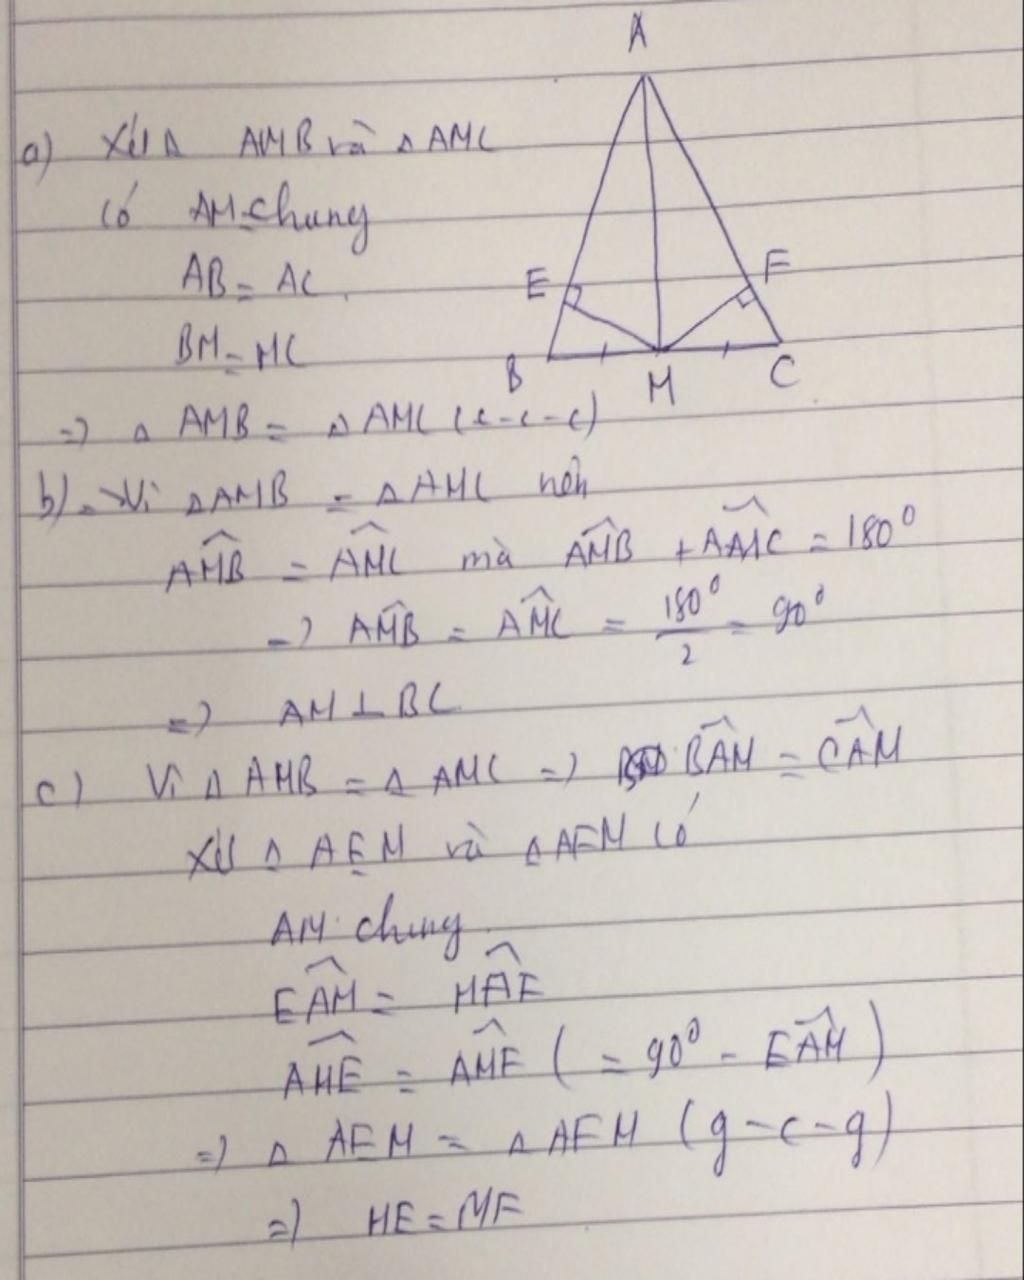 A
a) Xét Δ AMB và Δ AMC
có AM chung
AB = AC
E
F
BM = MC
B
M
C
=> Δ AMB = Δ AMC (c-c-c)
b) Vì ΔAMB = ΔAMC nên
AMB = AMC mà AMB + AMC = 180°
=> AMB = AMC = 180°/2 = 90°
=> AM ⊥ BC
c) Vì Δ AMB = Δ AMC => BAM = CAM
Xét Δ AEM và Δ AFM có
AM chung
EAM = MAF
AME = AMF ( = 90° - EAM )
=> Δ AEM = Δ AFM (g-c-g)
=> ME = MF